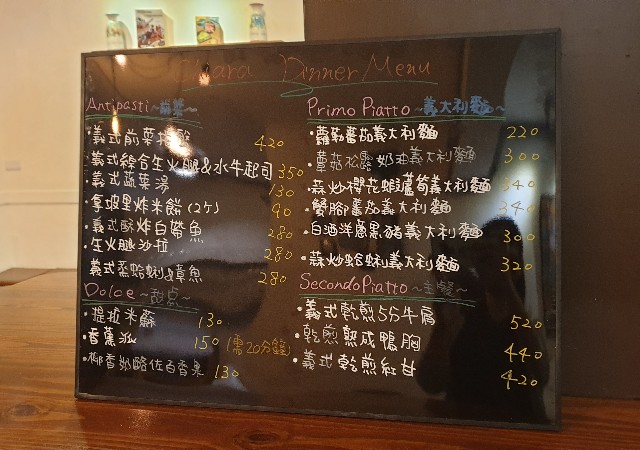 Chiara Dinner Menu
Antipasti ~前菜~
・義式前菜拼盤 420
・義式綜合生火腿&水牛起司 350
・義式蔬菜湯 130
・拿坡里炸米餅(2ケ) 90
・義式酥炸白帶魚 280
・生火腿沙拉 280
・義式蒸蛤蜊&章魚 280
Dolce ~甜點~
・提拉米蘇 130
・香蕉派 150 (需20分鐘)
・椰香奶酪佐百香果 130
Primo Piatto ~義大利麵~
・蘿勒番茄義大利麵 220
・蕈菇松露奶油義大利麵 300
・蒜炒櫻花蝦蘆筍義大利麵 340
・蟹腳番茄義大利麵 340
・白酒洋蔥黑豬義大利麵 300
・蒜炒蛤蜊義大利麵 320
Secondo Piatto ~主餐~
・義式乾煎SS牛肩 520
・乾煎熟成鴨胸 440
・義式乾煎紅甘 420